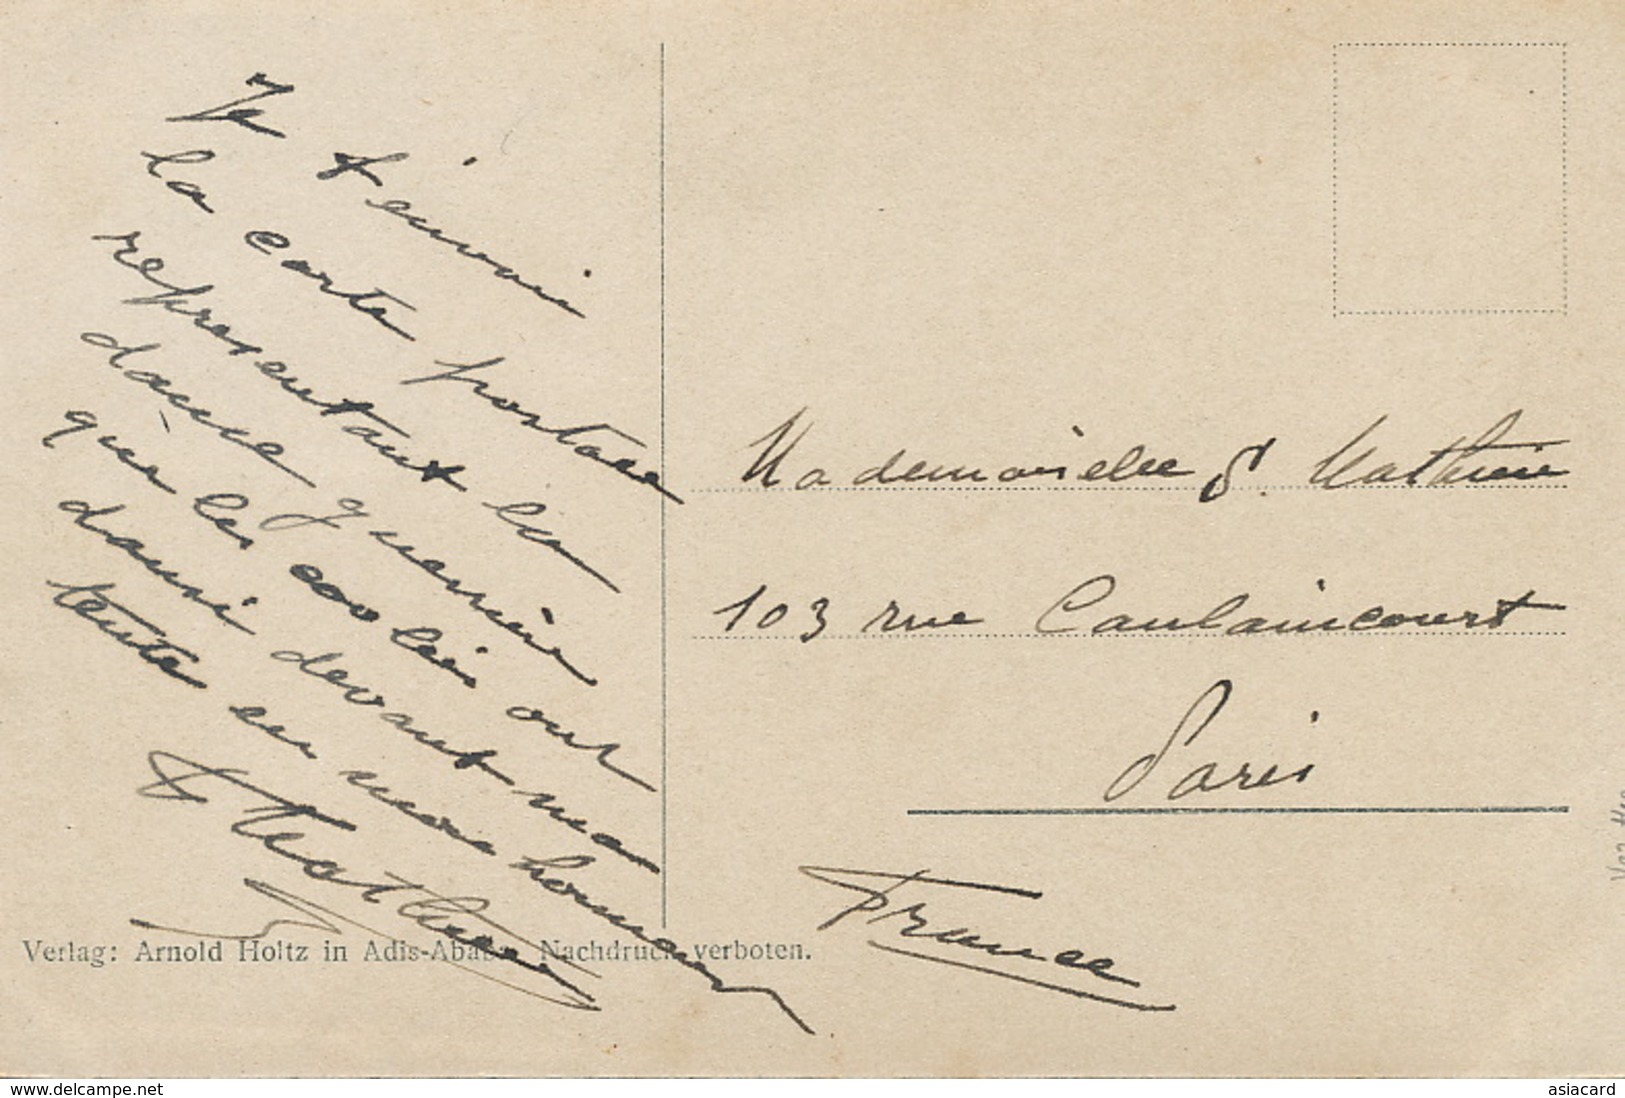 Je t'envoie
la carte postale
representant la
danse guerrière
què les coolies ont
dansé devant ma
tente en mon honneur
Mathieu
Mademoiselle S. Mathieu
103 rue Caulaincourt
Paris
France
Verlag: Arnold Holtz in Adis-Ababa. Nachdruck verboten.
www.delcampe.net
asiacard